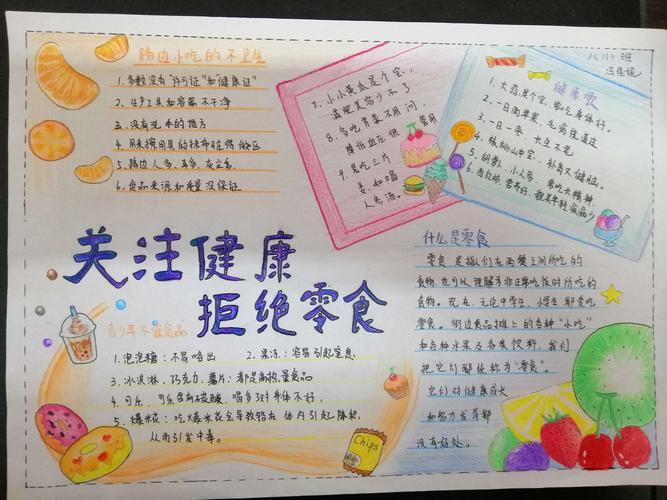 路边小吃的不卫生
1.多数没有"许可证"和健康证"
2.生产工具和容器不干净
3.没有洗手的地方
4.用来擦用具的抹布脏得傲区
5.路边人多、车多、灰尘多
6.食品来源和质量没保证
7.小小黄瓜是个宝,
减肥美容少不了
8.多吃青菜不用问,
降低血压很管用
9.晨吃三片
姜,如喝
人参汤。
八(1)班
健康歌
1.大蒜是个宝,常吃身体好。
2.一日两苹果,毛病绕道过
3.一日一枣,长生不老
4.核桃山中宝,补肾又健脑。
5.胡萝卜,小人参,常吃长精神
6.西红柿,营养好,貌美年轻疾病少
关注健康
拒绝零食
什么是零食
零食是指我们在两餐之间所吃的
食物,也可以理解为非正常吃饭时所吃的
食物。现在,无论中学生、小学生都爱吃
零食。街边食品摊上的各种"小吃"
和各种水果及各类饮料,我们
把它们都统称为"零食"。
它们对健康成长
和智力发育都
没有好处。
青少年不宜食品
1.泡泡糖:不易咯出
2.果冻:容易引起窒息
3.冰淇淋、巧克力、薯片:都是高热量食品
4.可乐:可乐含有碳酸,喝多对身体不好。
5.爆米花:吃爆米花会导致铅在体内引起陈积,
从而引发中毒。
Chips